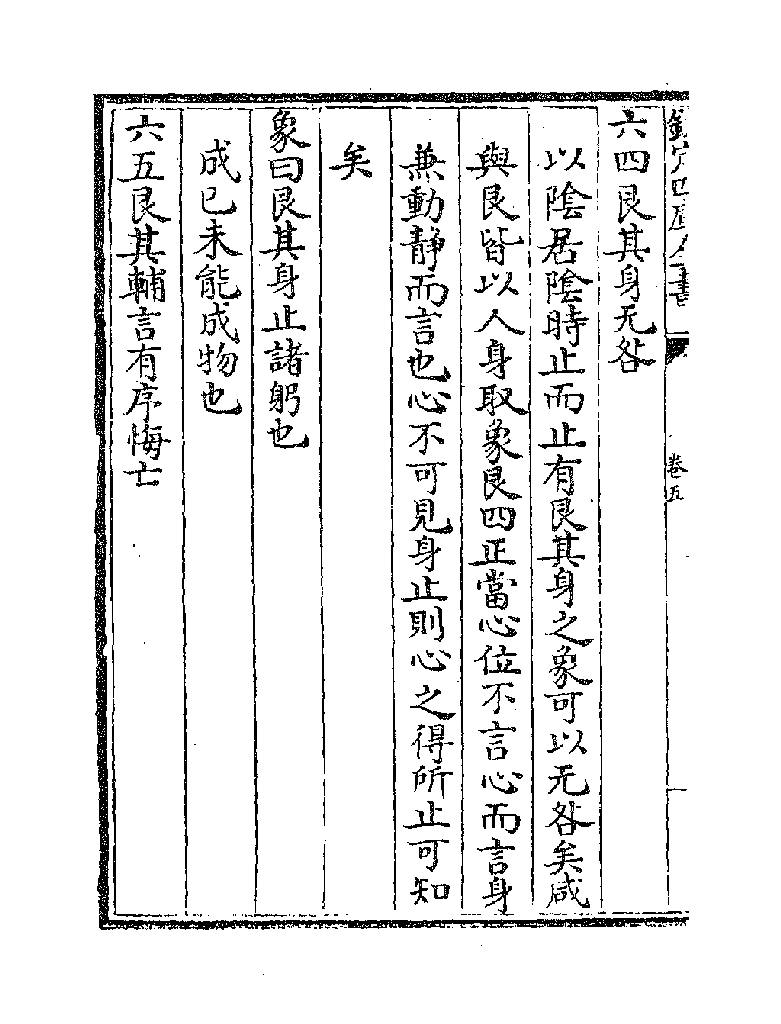 欽定四庫全書
卷五
六四艮其身无咎
以陰居陰時止而止有艮其身之象可以无咎矣咸
與艮皆以人身取象艮四正當心位不言心而言身
兼動靜而言也心不可見身止則心之得所止可知
矣
象曰艮其身止諸躬也
成已未能成物也
六五艮其輔言有序悔亡